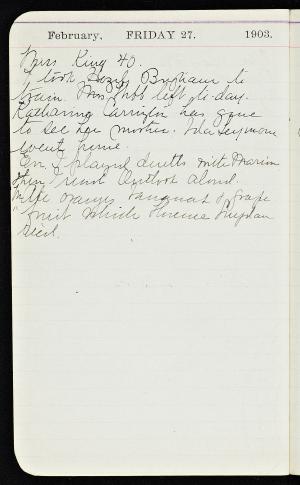 February, FRIDAY 27. 1903.
Miss King 40.
I took Brigham to
train. Mrs left to-day.
Katharine Carrington has gone
to see her mother. Ida Seymour
went home.
Ev. I played duetts with Marion
then I read Outlook aloud.
We ate oranges & grape
fruit which Florence
sent.